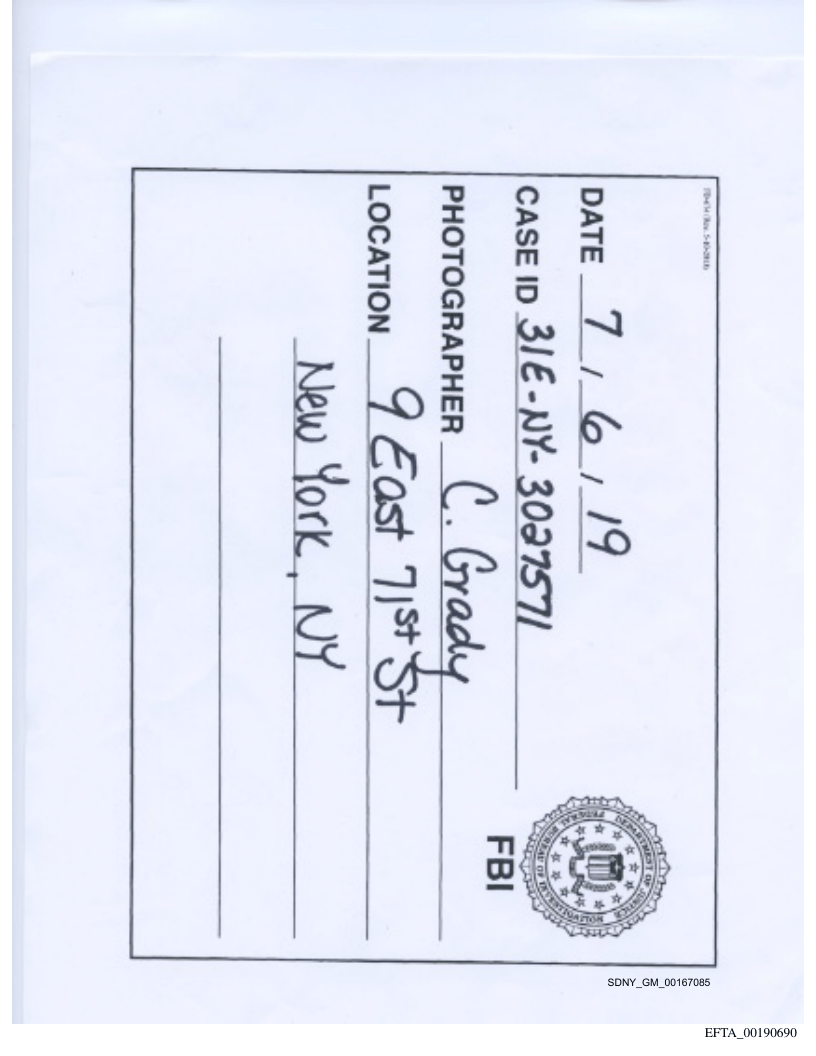 FD-674 (Rev. 5-10-2018)
DATE 7 / 6 / 19
CASE ID 31E-NY-3027571
PHOTOGRAPHER C. Grady
LOCATION 9 East 71st St
New York, NY
FBI
DEPARTMENT OF JUSTICE
FEDERAL BUREAU OF INVESTIGATION
SDNY_GM_00167085
EFTA_00190690